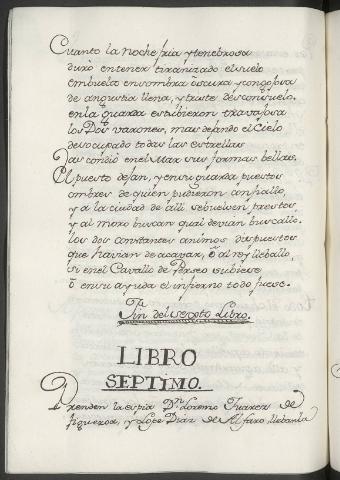 Cuanto la noche fria y tenebrosa
duró en tener tiranizado el suelo
embuelta en sombra oscura y congoxosa
de angustia llena, y triste desconsuelo.
en la guarda estubieron travajosa
los Dos varones, mas dejando el Cielo
desocupado todas las estrellas
las condió en el Mar sus formas bellas.
El puesto dejan, y en su guarda puestos
ombres de quien pudieron confiallo,
y a la ciudad de alli se buelven prestos
y al moro buscan qual devian buscallo.
los dos constantes animos dispuestos
que havian de acavar, ó al rey llevallo,
si en el Cavallo de Perseo subiese
ó en su ayuda el infierno todo fuese.
Fin del sexto Libro.
LIBRO
SEPTIMO.
Prenden la espia Dn. Lorenzo Suarez de
figueroa, y Lope Diaz de Alfaro, llebanla